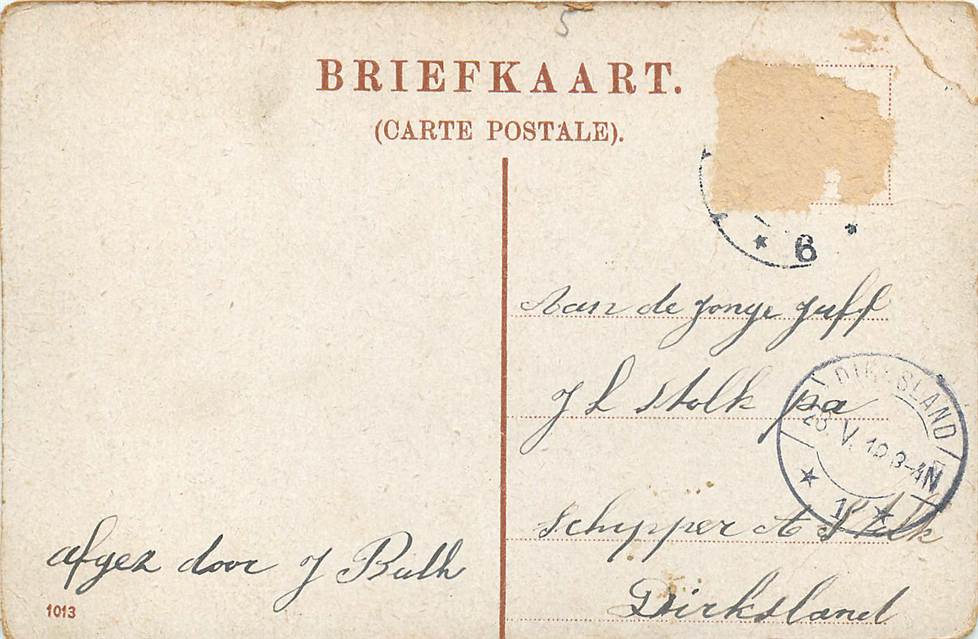 5
BRIEFKAART.
(CARTE POSTALE).
6
Aan de Jonge Juff
J L Stolk pa
DIRKSLAND
28.V.19 3-4N
1
Schypper A Stolk
Dirksland
afgez door J Bulk
1013